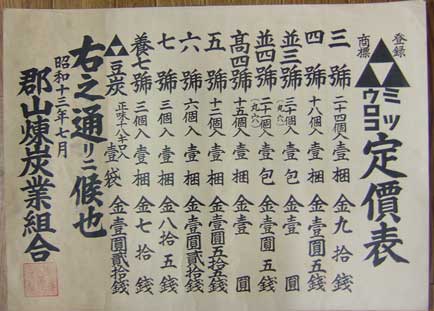 登録
商標
ミツ
ウロコ
定價表
三號 二十四個入 壹梱 金九拾錢
四號 十八個入 壹梱 金壹圓五錢
並三號 三十個入 壹包 金壹圓
並四號 二十二個入 壹包 金壹圓五錢
高四號 十五個入 壹梱 金壹圓
五號 十二個入 壹梱 金壹圓五拾五錢
六號 六個入 壹梱 金壹圓貳拾錢
七號 三個入 壹梱 金八拾五錢
養七號 三個入 壹梱 金七拾錢
豆炭 正味十八キロ入 壹袋 金壹圓貳拾錢
右之通リニ候也
昭和十三年七月
郡山煉炭業組合